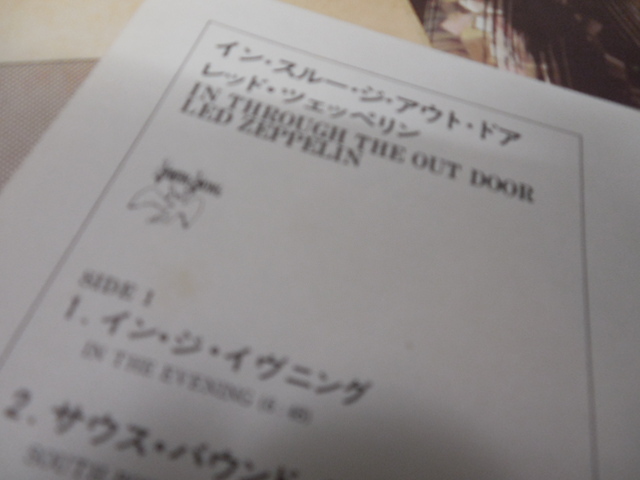 イン・スルー・ジ・アウト・ドア
レッド・ツェッペリン
IN THROUGH THE OUT DOOR
LED ZEPPELIN
SIDE 1
1. イン・ジ・イヴニング
IN THE EVENING
2. サウス・バウンド
SOUTH